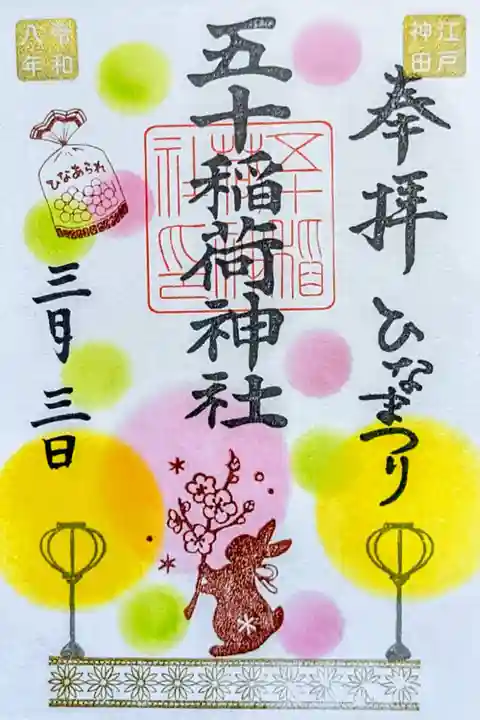 江戸
神田
奉拝 ひなまつり
五十稲荷神社
五十稲荷神社印
令和
八年
ひなあられ
三月三日